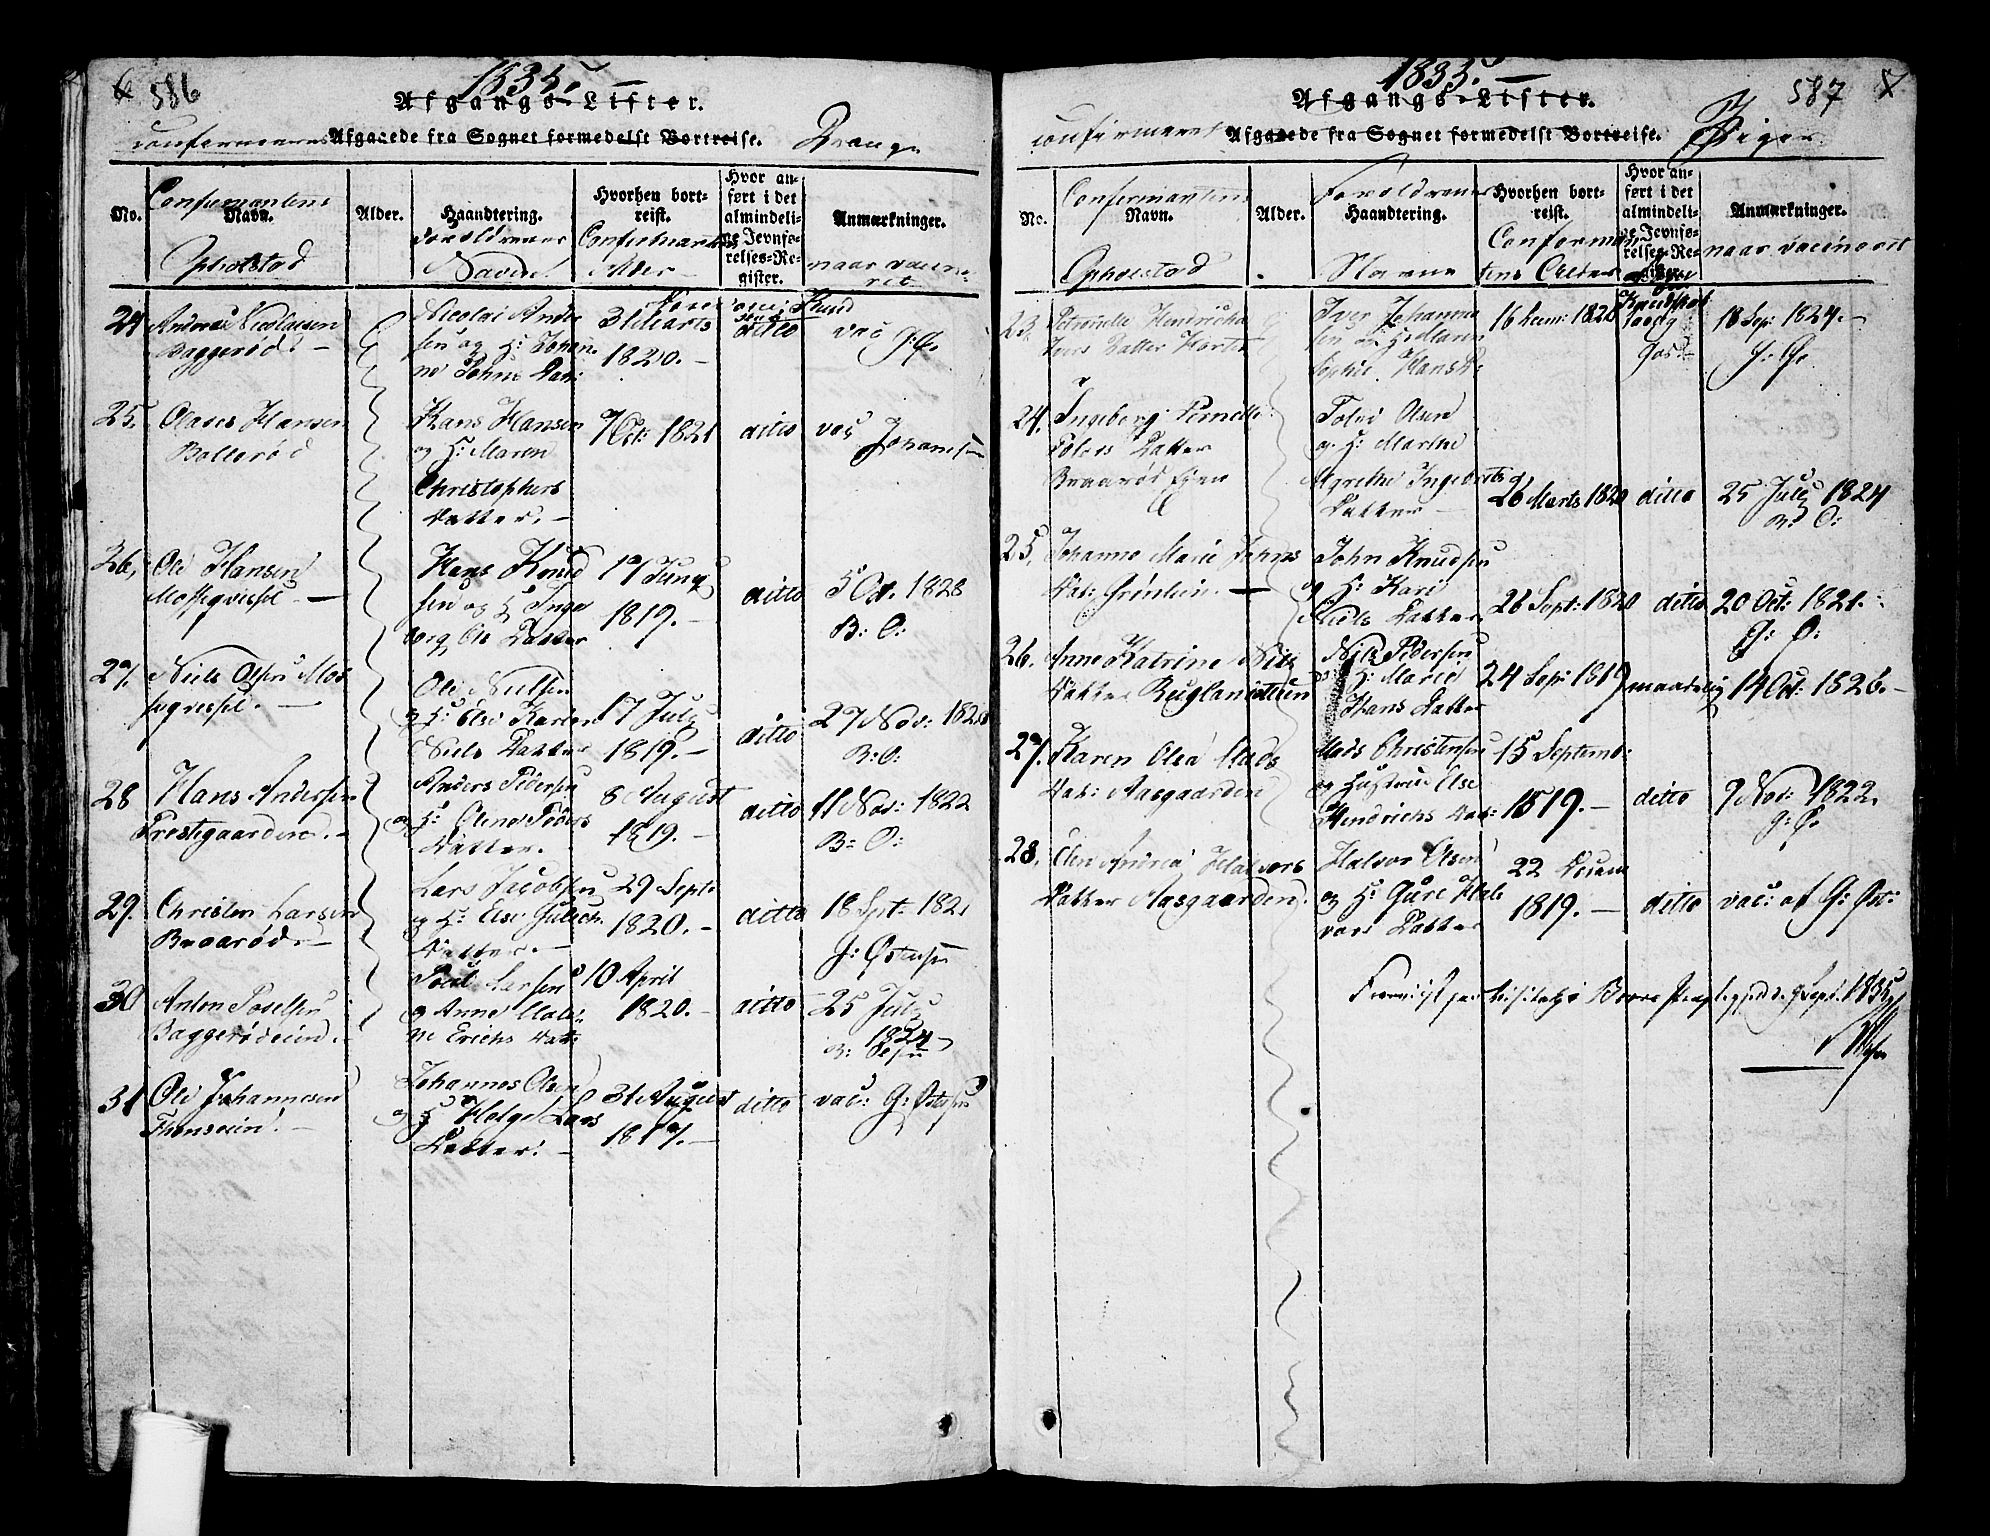 586
1835.
Afgangs-Lister.
Confirmerede Afgaaede fra Sognet formedelst Bortreise. Drenge
No.
Confirmantens
Navn.
Opholstæd
Alder.
Haandtering.
Forældrenes
Navne
Hvorhen bort-
reist.
Confirmanten
Alder
Hvor an-
ført i det
almindeli-
ge Jevnfø-
relses-Re-
gister.
Anmærkninger.
naar vaccine-
ret
24
Anders Nicolaisen
Baggerød
Nicolai Ander
sen og H: Johan
ne Johns Dat:
31 Marts
1820.
ditto
vac
25.
Claves Hansen
Bollerød
Hans Hansen
og H: Maren
Christophers
Datter.
7 Oct: 1821
ditto
vac
Johansen
26,
Ole Hansen
Moseqvisset
Hans Knud
sen og H Inge
borg Ole Datter
19 Juny
1819.
ditto
5 Oct. 1828
B: O:
27.
Niels Olsen Mos
seqvissel.
Ole Nielsen
og H: Else Karen
Niels Datter
17 July
1819.
ditto
27 Nov: 1820
B: O:
28
Hans Andersen
Prestegaarden.
Anders Pedersen
og H: Olene Peders
Datter.
8 August
1819.
ditto
11 Nov: 1822
B: O:
29.
Christen Larsen
Braarød
Lars Jacobsen
og H: Else Gulich
Datter.
29 Sept:
1820.
ditto
18 Sept: 1821
J: Østensen
30
Anton Poselsen
Baggerødeie
Larsen
og Anne Mali
ne Erichs Dat:
10 April
1820.
ditto
25 July
1824
31
Ole Johannesen
Johannes Olsen
og H Helge Lars
Datter.
31 August
1817.
ditto
vac: G: Østensen
587
1835.
Afgangs-Lister.
confirmerede Afgaaede fra Sognet formedelst Bortreise. Piger
No.
Confirmantens
Navn.
Opholstæd
Alder.
Forældrenes
Haandtering.
Navne
Hvorhen bort-
reist.
Confirman
tens Alder
Hvor an-
ført i det
almindeli-
ge Jevnfø-
relses-Re-
gister.
Anmærkninger.
naar vacineret
23.
Petronelle Hendricha
Ivers Datter Horten
Iver Johanne
sen & H Maren
Sophie Hans D.
Kundskab
maadelig
god
18 Sep: 1824.
G: Ø:
24.
Ingeborg Pernille
Tolvs Datter
Braarød Ejen
Tolv Olsen
og H: Marthe
Agrethe Ingebrets
Datter
26 Marts 1820
ditto
25 July 1824
B: O:
25.
Johanne Marie Johns
Dat: Grønlien.
John Knudsen
og H: Kari
Niels Datter
26 Sept: 1820
ditto
20 Oct: 1821.
G: Ø:
26.
Anne Katrine Nils
Datter
Nils Pedersen
H: Marie
Hans Datter
24 Sep: 1819
maadelig
14 Oct: 1826.
27.
Karen Olea Mads
Dat: Aasgaarden
Mads Christensen
og Hustrue Else
Hendrichs Dat:
15 Septemb:
1819.
ditto
9 Nov: 1822.
G: Ø:
28.
Olen Andrea Halvors
Datter Aasgaarden.
Halvor Olsen
og H: Gure Hal
vors Datter
22 Decem
1819.
ditto
vac: af G: Øst:
Fremvist paa Visitatz i Borre Præstegjeld d. 9 Sept. 1835